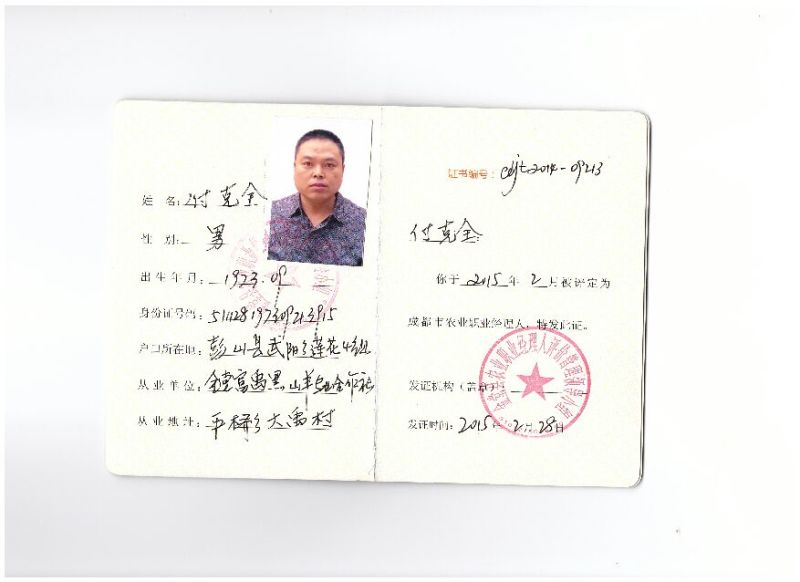 姓 名: 付克全
性 别: 男
出生年月: 1973.09
身份证号码: 511428197309213915
户口所在地: 彭山县武阳乡莲花4组
从业单位: 金堂富禹黑山羊专业合作社
从业地址: 平桥乡大禹村
证书编号: cdjt2014-09213
付克全
你于 2015 年 2 月被评定为
成都市农业职业经理人, 特发此证。
发证机构 (盖章):
发证时间: 2015年2月28日